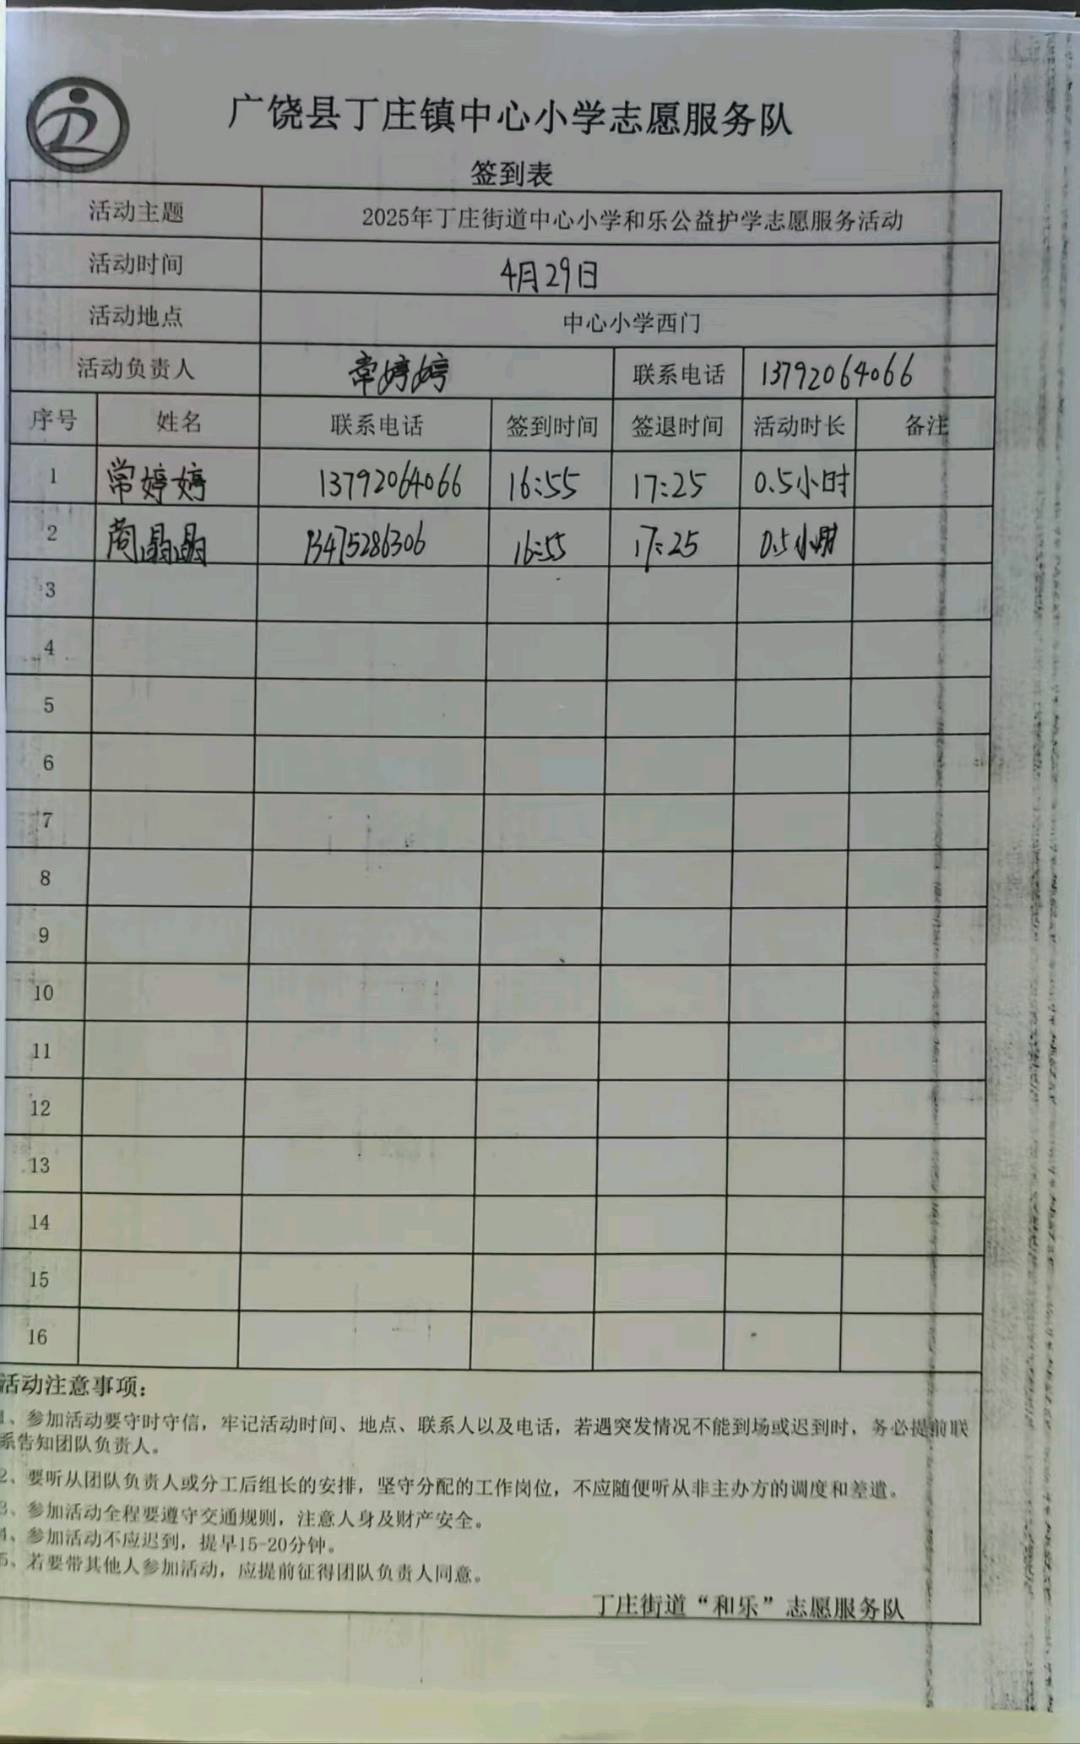 广饶县丁庄镇中心小学志愿服务队
签到表
活动主题 2025年丁庄街道中心小学和乐公益护学志愿服务活动
活动时间 4月29日
活动地点 中心小学西门
活动负责人 常婷婷 联系电话 13792064066
序号 姓名 联系电话 签到时间 签退时间 活动时长 备注
1 常婷婷 13792064066 16:55 17:25 0.5小时
2 晶晶 13475286306 16:55 17:25 0.5小时
3
4
5
6
7
8
9
10
11
12
13
14
15
16
活动注意事项：
1、参加活动要守时守信，牢记活动时间、地点、联系人以及电话，若遇突发情况不能到场或迟到时，务必提前联
系告知团队负责人。
2、要听从团队负责人或分工后组长的安排，坚守分配的工作岗位，不应随便听从非主办方的调度和差遣。
3、参加活动全程要遵守交通规则，注意人身及财产安全。
4、参加活动不应迟到，提早15-20分钟。
5、若要带其他人参加活动，应提前征得团队负责人同意。
丁庄街道“和乐”志愿服务队